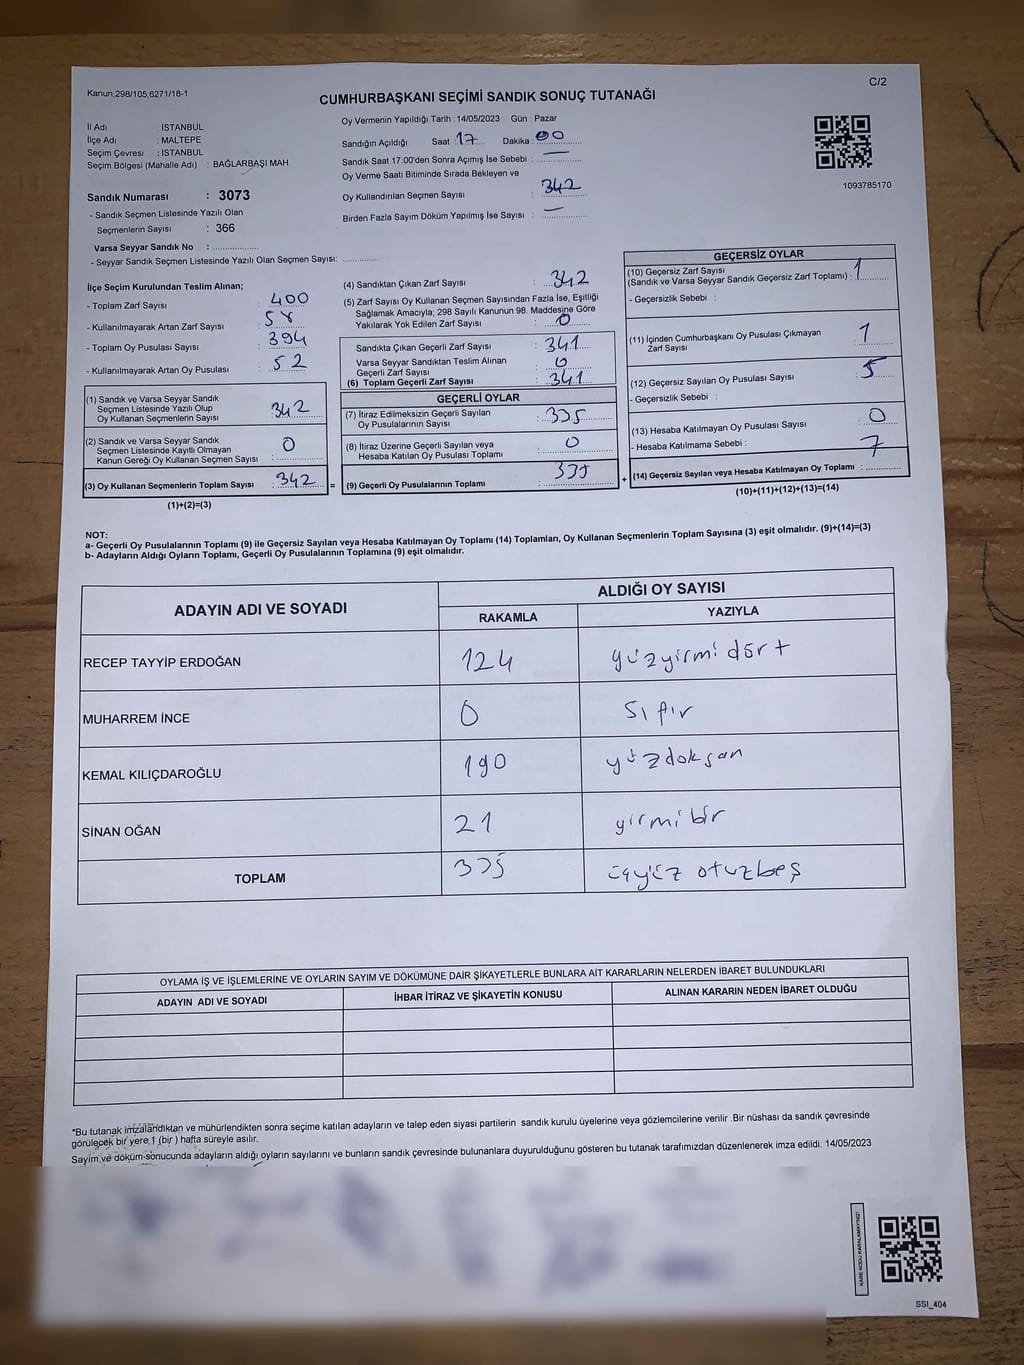 Kanun;298/105,6271/18-1
C/2
CUMHURBAŞKANI SEÇİMİ SANDIK SONUÇ TUTANAĞI
İl Adı : İSTANBUL
İlçe Adı : MALTEPE
Seçim Çevresi : İSTANBUL
Seçim Bölgesi (Mahalle Adı) : BAĞLARBAŞI MAH.
Sandık Numarası : 3073
- Sandık Seçmen Listesinde Yazılı Olan
Seçmenlerin Sayısı : 366
Varsa Seyyar Sandık No :
- Seyyar Sandık Seçmen Listesinde Yazılı Olan Seçmen Sayısı:
Oy Vermenin Yapıldığı Tarih :14/05/2023 Gün : Pazar
Sandığın Açıldığı Saat 17 Dakika : 00
Sandık Saat 17:00'den Sonra Açımış İse Sebebi : —
Oy Verme Saati Bitiminde Sırada Bekleyen ve
Oy Kullandırılan Seçmen Sayısı : 342
Birden Fazla Sayım Döküm Yapılmış İse Sayısı : —
1093785170
İlçe Seçim Kurulundan Teslim Alınan;
- Toplam Zarf Sayısı : 400
- Kullanılmayarak Artan Zarf Sayısı : 58
- Toplam Oy Pusulası Sayısı : 394
- Kullanılmayarak Artan Oy Pusulası : 52
(1) Sandık ve Varsa Seyyar Sandık
Seçmen Listesinde Yazılı Olup
Oy Kullanan Seçmenlerin Sayısı : 342
(2) Sandık ve Varsa Seyyar Sandık
Seçmen Listesinde Kayıtlı Olmayan
Kanun Gereği Oy Kullanan Seçmen Sayısı : 0
(3) Oy Kullanan Seçmenlerin Toplam Sayısı : 342 =
(1)+(2)=(3)
(4) Sandıktan Çıkan Zarf Sayısı : 342
(5) Zarf Sayısı Oy Kullanan Seçmen Sayısından Fazla İse, Eşitliği
Sağlamak Amacıyla; 298 Sayılı Kanunun 98. Maddesine Göre
Yakılarak Yok Edilen Zarf Sayısı : 0
Sandıkta Çıkan Geçerli Zarf Sayısı : 341
Varsa Seyyar Sandıktan Teslim Alınan
Geçerli Zarf Sayısı : 0
(6) Toplam Geçerli Zarf Sayısı : 341
GEÇERLİ OYLAR
(7) İtiraz Edilmeksizin Geçerli Sayılan
Oy Pusulalarının Sayısı : 335
(8) İtiraz Üzerine Geçerli Sayılan veya
Hesaba Katılan Oy Pusulası Toplamı : 0
(9) Geçerli Oy Pusulalarının Toplamı : 335 +
GEÇERSİZ OYLAR
(10) Geçersiz Zarf Sayısı
(Sandık ve Varsa Seyyar Sandık Geçersiz Zarf Toplamı) : 1
- Geçersizlik Sebebi :
(11) İçinden Cumhurbaşkanı Oy Pusulası Çıkmayan
Zarf Sayısı : 1
(12) Geçersiz Sayılan Oy Pusulası Sayısı : 5
- Geçersizlik Sebebi :
(13) Hesaba Katılmayan Oy Pusulası Sayısı : 0
- Hesaba Katılmama Sebebi :
(14) Geçersiz Sayılan veya Hesaba Katılmayan Oy Toplamı : 7
(10)+(11)+(12)+(13)=(14)
NOT:
a- Geçerli Oy Pusulalarının Toplamı (9) ile Geçersiz Sayılan veya Hesaba Katılmayan Oy Toplamı (14) Toplamları, Oy Kullanan Seçmenlerin Toplam Sayısına (3) eşit olmalıdır. (9)+(14)=(3)
b- Adayların Aldığı Oyların Toplamı, Geçerli Oy Pusulalarının Toplamına (9) eşit olmalıdır.
ADAYIN ADI VE SOYADI ALDIĞI OY SAYISI
RAKAMLA YAZIYLA
RECEP TAYYİP ERDOĞAN 124 yüzyirmi dört
MUHARREM İNCE 0 Sıfır
KEMAL KILIÇDAROĞLU 190 yüzdoksan
SİNAN OĞAN 21 yirmi bir
TOPLAM 335 üçyüz otuzbeş
OYLAMA İŞ VE İŞLEMLERİNE VE OYLARIN SAYIM VE DÖKÜMÜNE DAİR ŞİKAYETLERLE BUNLARA AİT KARARLARIN NELERDEN İBARET BULUNDUKLARI
ADAYIN ADI VE SOYADI İHBAR İTİRAZ VE ŞİKAYETİN KONUSU ALINAN KARARIN NEDEN İBARET OLDUĞU
*Bu tutanak imzalandıktan ve mühürlendikten sonra seçime katılan adayların ve talep eden siyasi partilerin sandık kurulu üyelerine veya gözlemcilerine verilir .Bir nüshası da sandık çevresinde
görülecek bir yere 1 (bir ) hafta süreyle asılır.
Sayım ve döküm sonucunda adayların aldığı oyların sayılarını ve bunların sandık çevresinde bulunanlara duyurulduğunu gösteren bu tutanak tarafımızdan düzenlenerek imza edildi. 14/05/2023
KARE KODU KARALAMAYINIZ!
SSI_404